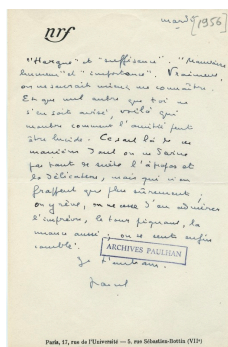 nrf
mardi [1956]
"Hargne" et "suffisance", "Mauvaise
humeur" et "importance". Vraiment,
on ne saurait mieux
Et que nul autre que toi ne
s'en soit avisé, voilà qui
montre comment l'amitié peut
être lucide. Ce sont là de ces
manières dont on se
pas tout de suite l'à-propos et
la délicatesse, mais qui n'en
frappent que plus sûrement;
on y rêve, on ne cesse d'en admirer
l'imprévu, le tour piquant, la
nuance aussi; on se sent enfin
comblé.
Je t'embrasse.
ARCHIVES PAULHAN
Paris, 17, rue de l'Université — 5, rue Sébastien-Bottin (VIIe)